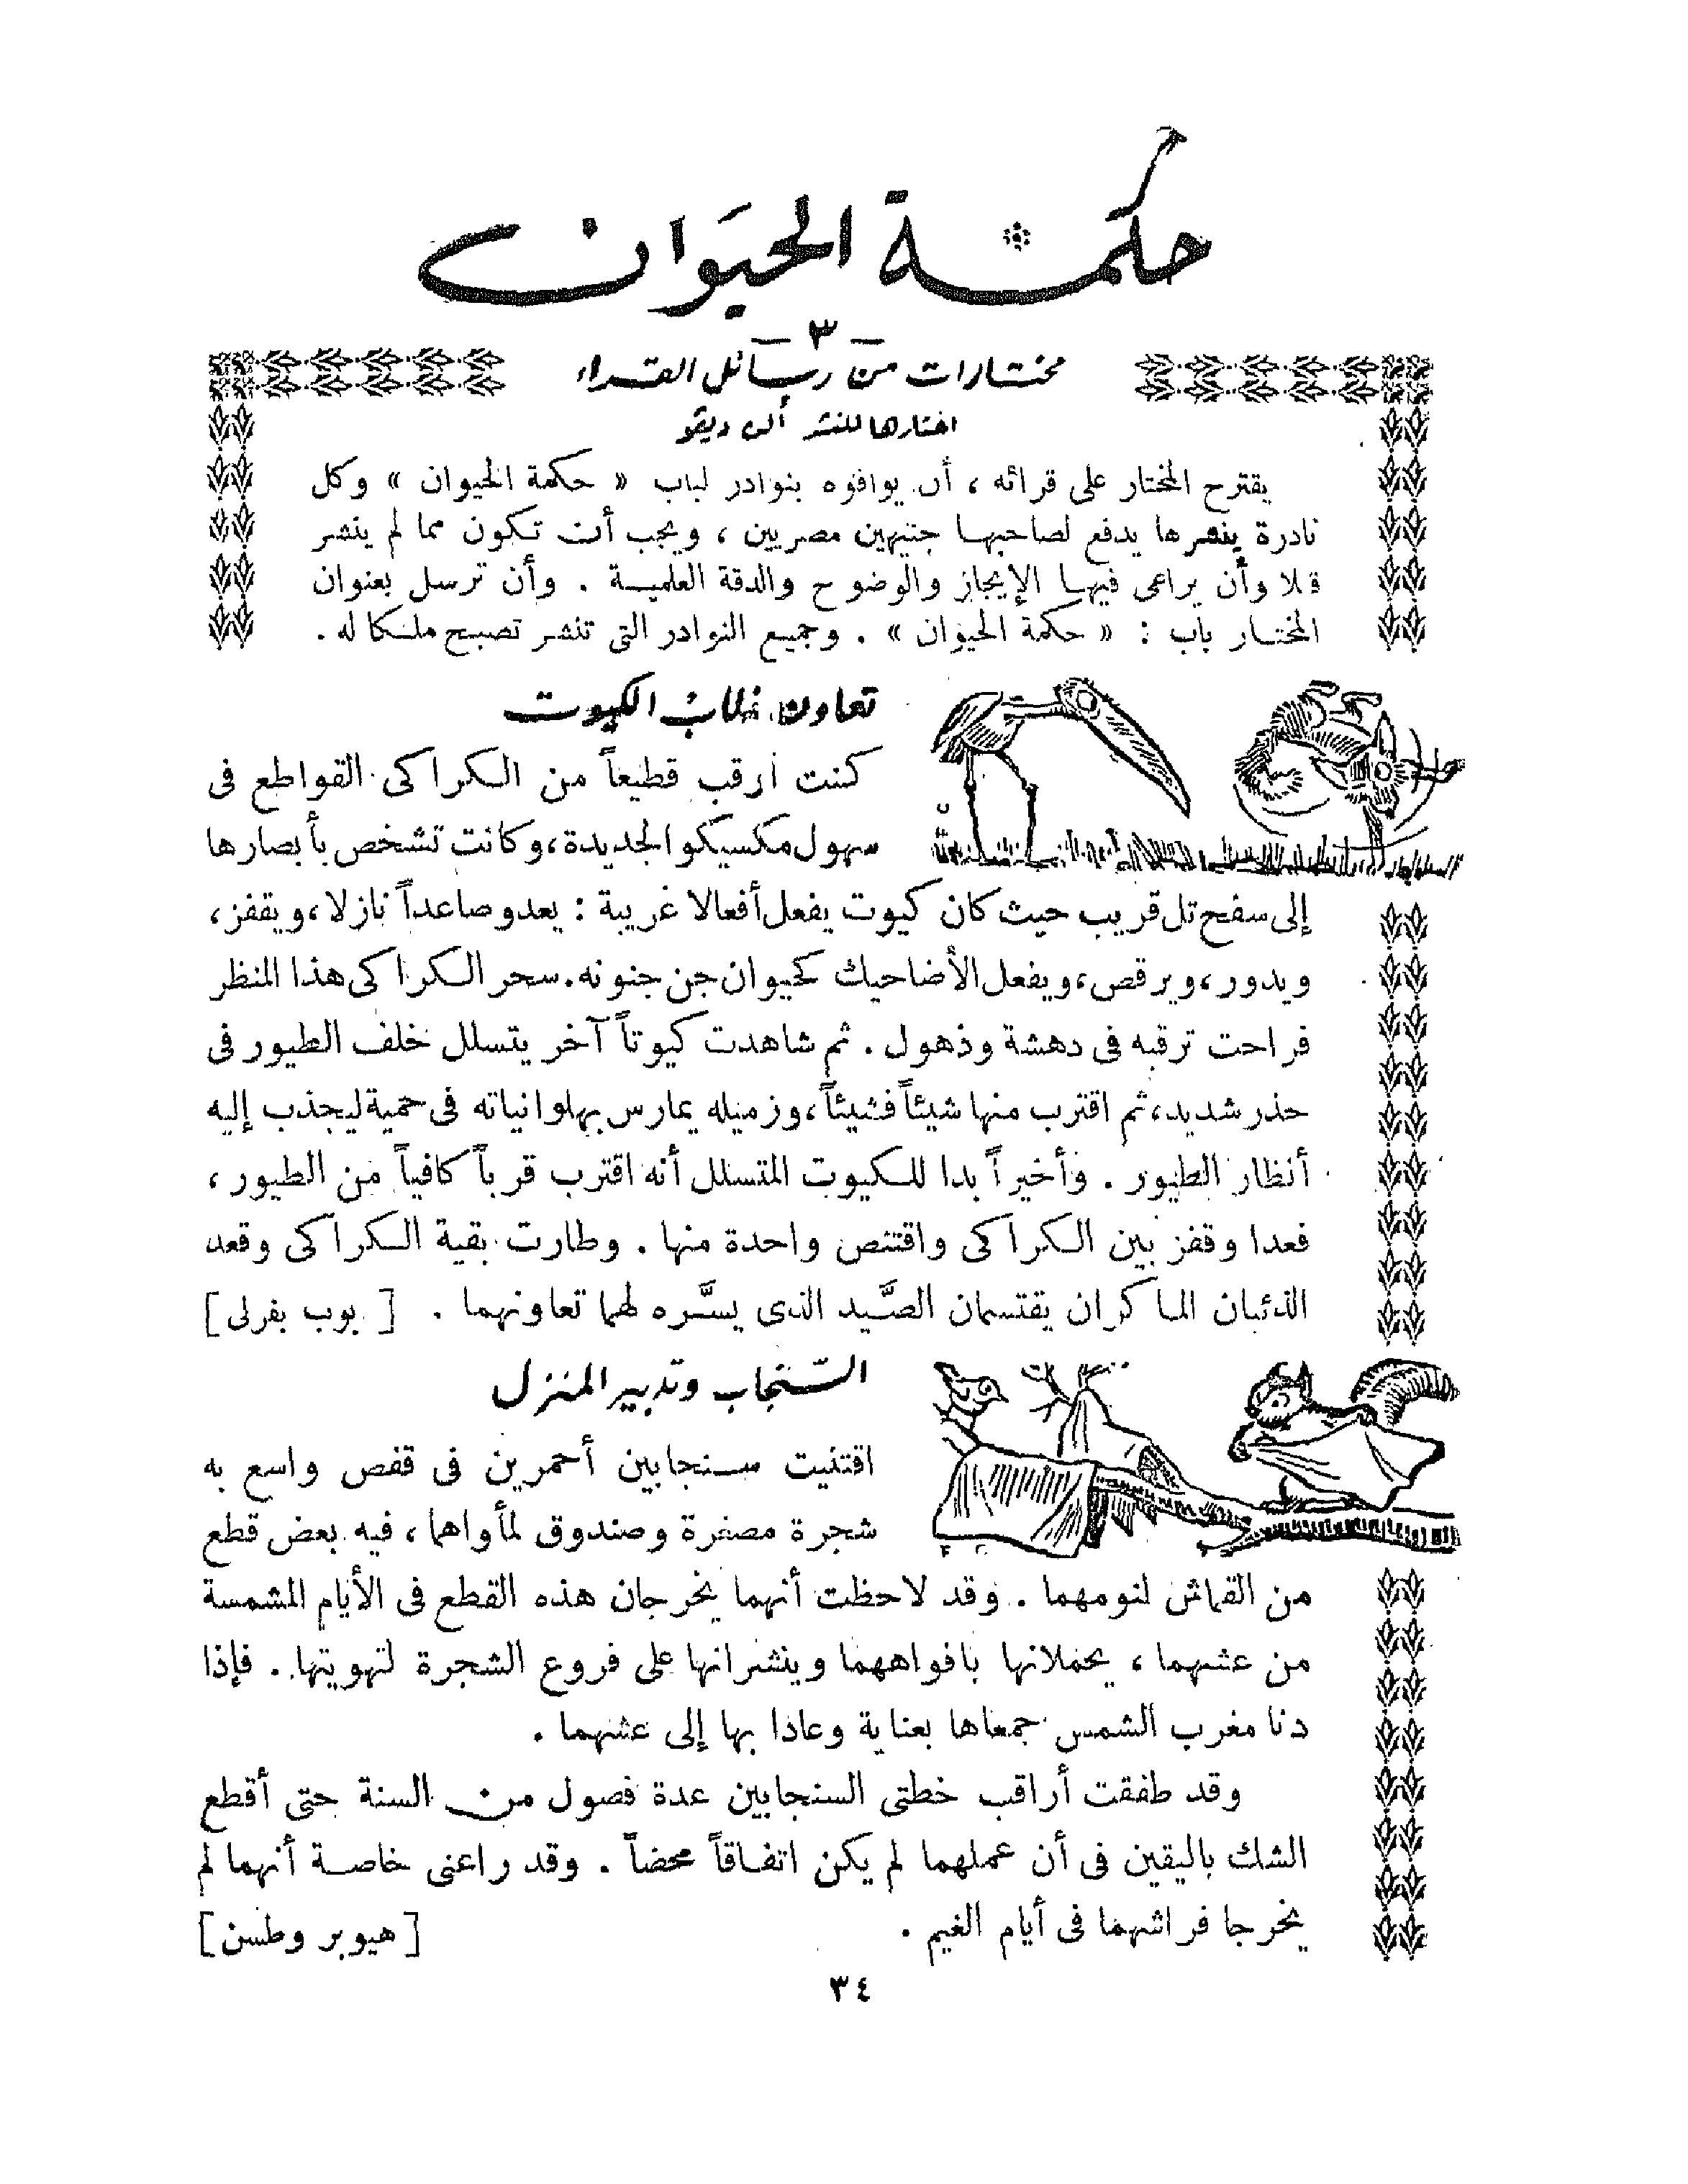 حكمة الحيوان
— ٣ —
مختارات من رسائل القراء
اختارها للنشر ألن ديڤو
يقترح المختار على قرائه ، أن يوافوه بنوادر لباب « حكمة الحيوان » وكل
نادرة ينشرها يدفع لصاحبها جنيهين مصريين ، ويجب أن تكون مما لم ينشر
قبلا وأن يراعى فيها الإيجاز والوضوح والدقة العلمية . وأن ترسل بعنوان
المختار باب : « حكمة الحيوان » . وجميع النوادر التى تنشر تصبح ملكا له .
تعاون ذئاب الكيوت
كنت أرقب قطيعاً من الكراكى القواطع فى
سهول مكسيكو الجديدة ، وكانت تشخص بأبصارها
إلى سفح تل قريب حيث كان كيوت يفعل أفعالا غريبة : يعدو صاعداً نازلا ، ويقفز ،
ويدور ، ويرقص ، ويفعل الأضاحيك كحيوان جن جنونه . سحر الكراكى هذا المنظر
فراحت ترقبه فى دهشة وذهول . ثم شاهدت كيوتاً آخر يتسلل خلف الطيور فى
حذر شديد ، ثم اقترب منها شيئاً فشيئاً ، وزميله يمارس بهلوانياته فى حمية ليجذب إليه
أنظار الطيور . وأخيراً بدا للكيوت المتسلل أنه اقترب قرباً كافياً من الطيور ،
فعدا وقفز بين الكراكى واقتنص واحدة منها . وطارت بقية الكراكى وقعد
الذئبان الماكران يقتسمان الصَّيد الذى يسَّره لهما تعاونهما . [ بوب بفرلى ]
السّنجاب وتدبير المنزل
اقتنيت سنجابين أحمرين فى قفص واسع به
شجرة مصغرة وصندوق لمأواهما ، فيه بعض قطع
من القماش لنومهما . وقد لاحظت أنهما يخرجان هذه القطع فى الأيام المشمسة
من عشهما ، يحملانها بافواههما وينشرانها على فروع الشجرة لتهويتها . فإذا
دنا مغرب الشمس جمعاها بعناية وعادا بها إلى عشهما .
وقد طفقت أراقب خطتى السنجابين عدة فصول من السنة حتى أقطع
الشك باليقين فى أن عملهما لم يكن اتفاقاً محضاً . وقد راعنى خاصة أنهما لم
يخرجا فراشهما فى أيام الغيم . [ هيوبر وطسن ]
٣٤